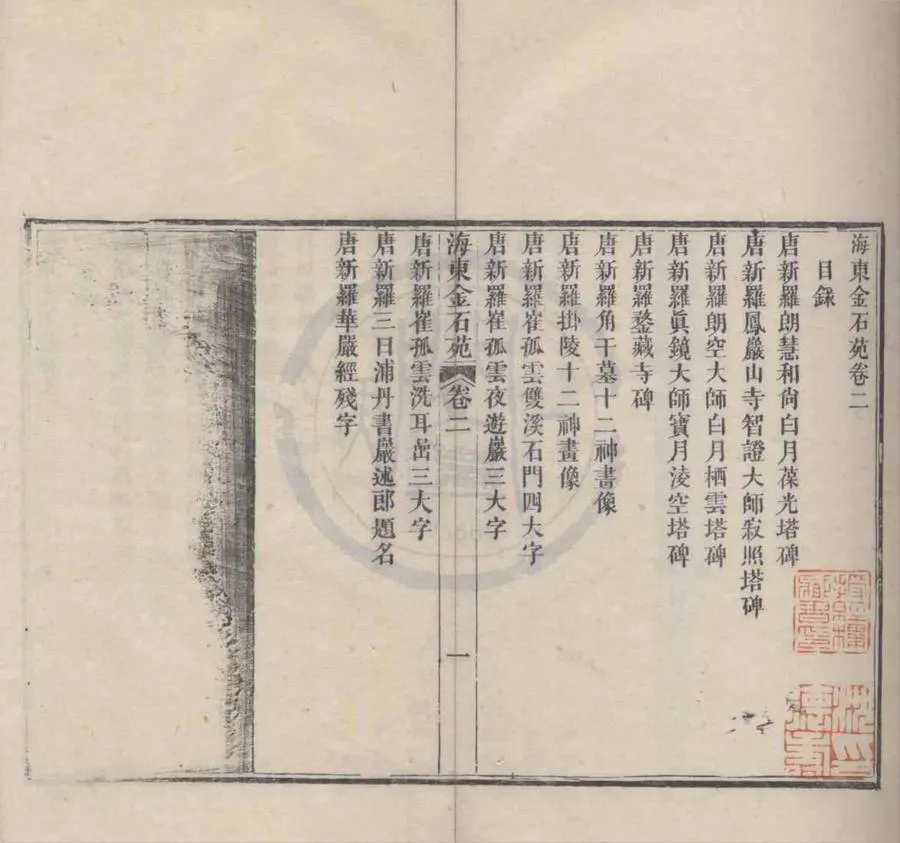 海東金石苑卷二
目錄
唐新羅朗慧和尙白月葆光塔碑
唐新羅鳳巖山寺智證大師寂照塔碑
唐新羅朗空大師白月栖雲塔碑
唐新羅眞鏡大師寶月淩空塔碑
唐新羅鍪藏寺碑
唐新羅角干墓十二神畫像
唐新羅掛陵十二神畫像
唐新羅崔孤雲雙溪石門四大字
唐新羅崔孤雲夜遊巖三大字
海東金石苑 卷二 一
唐新羅崔孤雲洗耳嵒三大字
唐新羅三日浦丹書嚴述郎題名
唐新羅華嚴經殘字